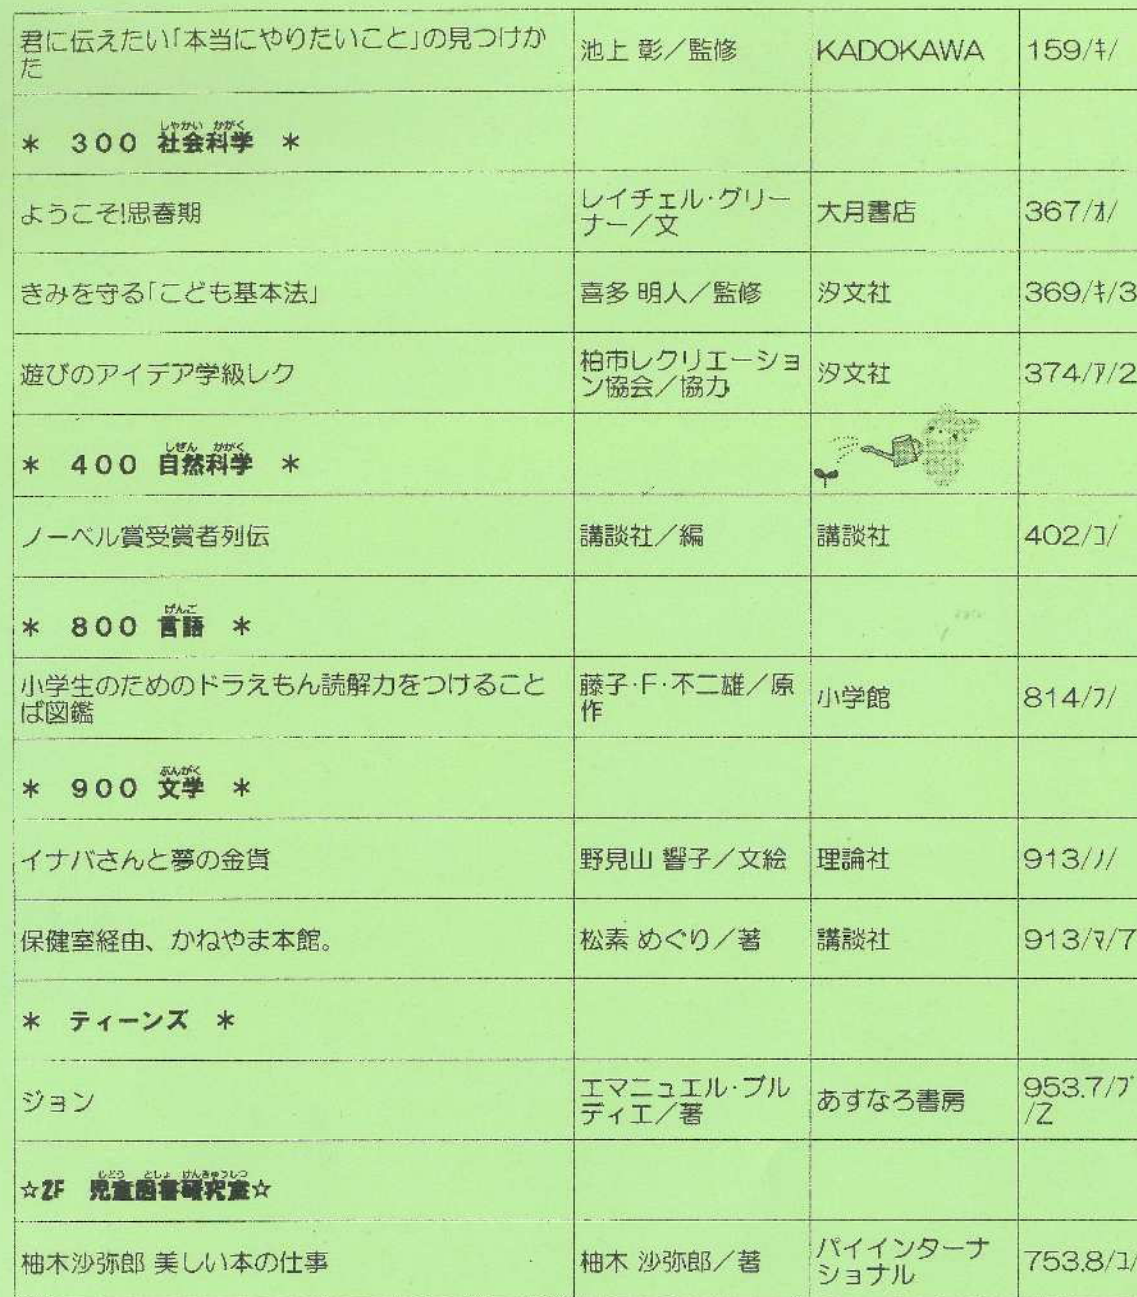 君に伝えたい「本当にやりたいこと」の見つけか
た
池上 彰／監修
KADOKAWA
159/ｷ/
しゃかい かがく
＊ 300 社会科学 ＊
ようこそ!思春期
レイチェル・グリー
ナー／文
大月書店
367/ｵ/
きみを守る「こども基本法」
喜多 明人／監修
汐文社
369/ｷ/3
遊びのアイデア学級レク
柏市レクリエーショ
ン協会／協力
汐文社
374/ｱ/2
しぜん かがく
＊ 400 自然科学 ＊
ノーベル賞受賞者列伝
講談社／編
講談社
402/ｺ/
げんご
＊ 800 言語 ＊
小学生のためのドラえもん読解力をつけること
ば図鑑
藤子・F・不二雄／原
作
小学館
814/ﾌ/
ぶんがく
＊ 900 文学 ＊
イナバさんと夢の金貨
野見山 響子／文絵
理論社
913/ﾉ/
保健室経由、かねやま本館。
松素 めぐり／著
講談社
913/ﾏ/7
＊ ティーンズ ＊
ジョン
エマニュエル・ブル
ディエ／著
あすなろ書房
953.7/ﾌﾞ
/Z
じどう としょ けんきゅうしつ
☆2F 児童図書研究室☆
柚木沙弥郎 美しい本の仕事
柚木 沙弥郎／著
パイインターナ
ショナル
753.8/ﾕ/